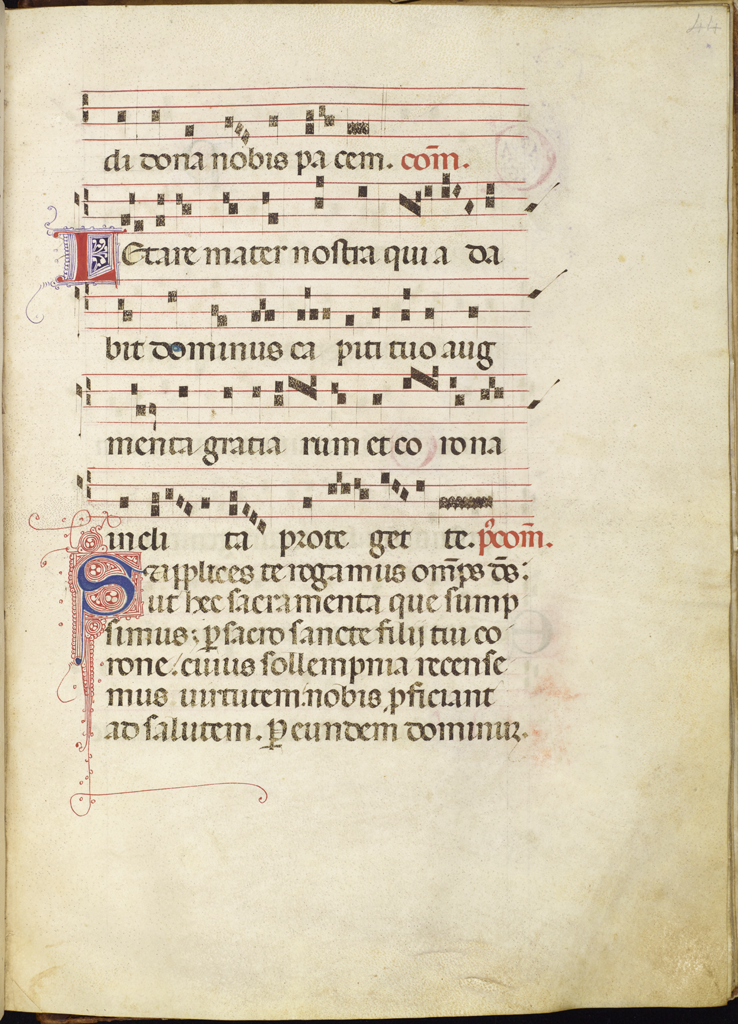 44
di dona nobis pa cem. com̄.
LEtare mater nostra qui a da
bit dominus ca piti tuo aug
menta gratia rum et co rona
incli ta prote get te. p̓com̄.
Supplices te rogamus om̄ps ds̄:
ut hec sacramenta que sump
simus: ꝑ sacro sancte filij tui co
rone. cuius sollempnia recense
mus uirtutem: nobis ꝓficiant
ad salutem. Ꝑ eundem dominuꝫ.